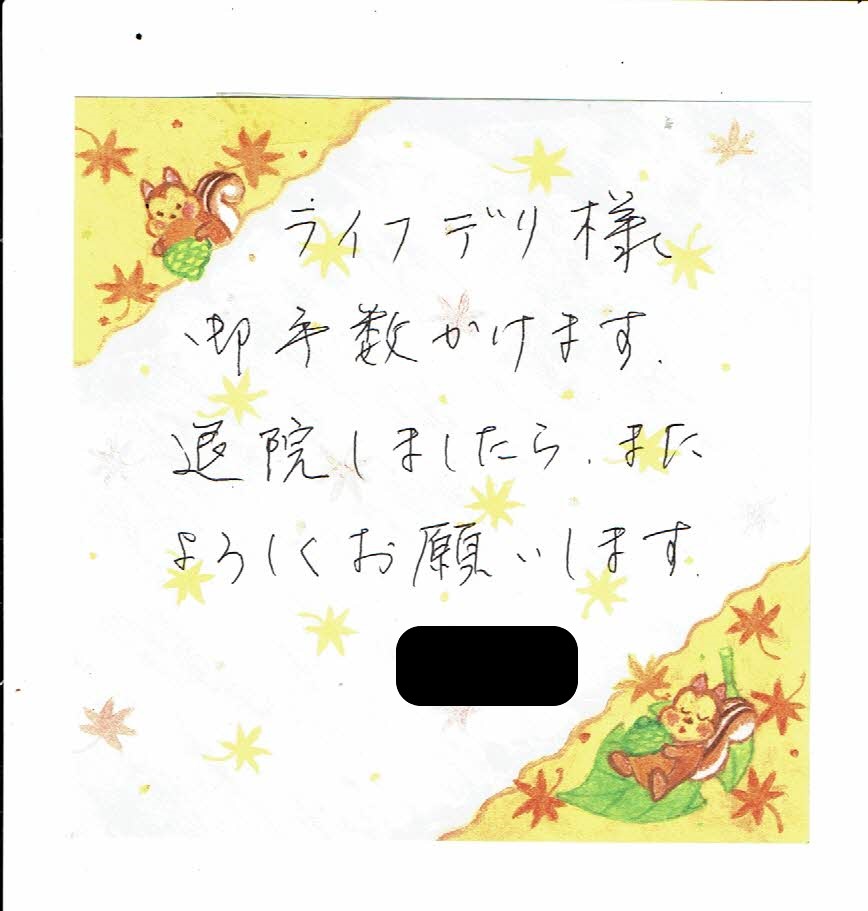 ライフデリ様
御手数かけます.
退院しましたら、また
よろしくお願いします.